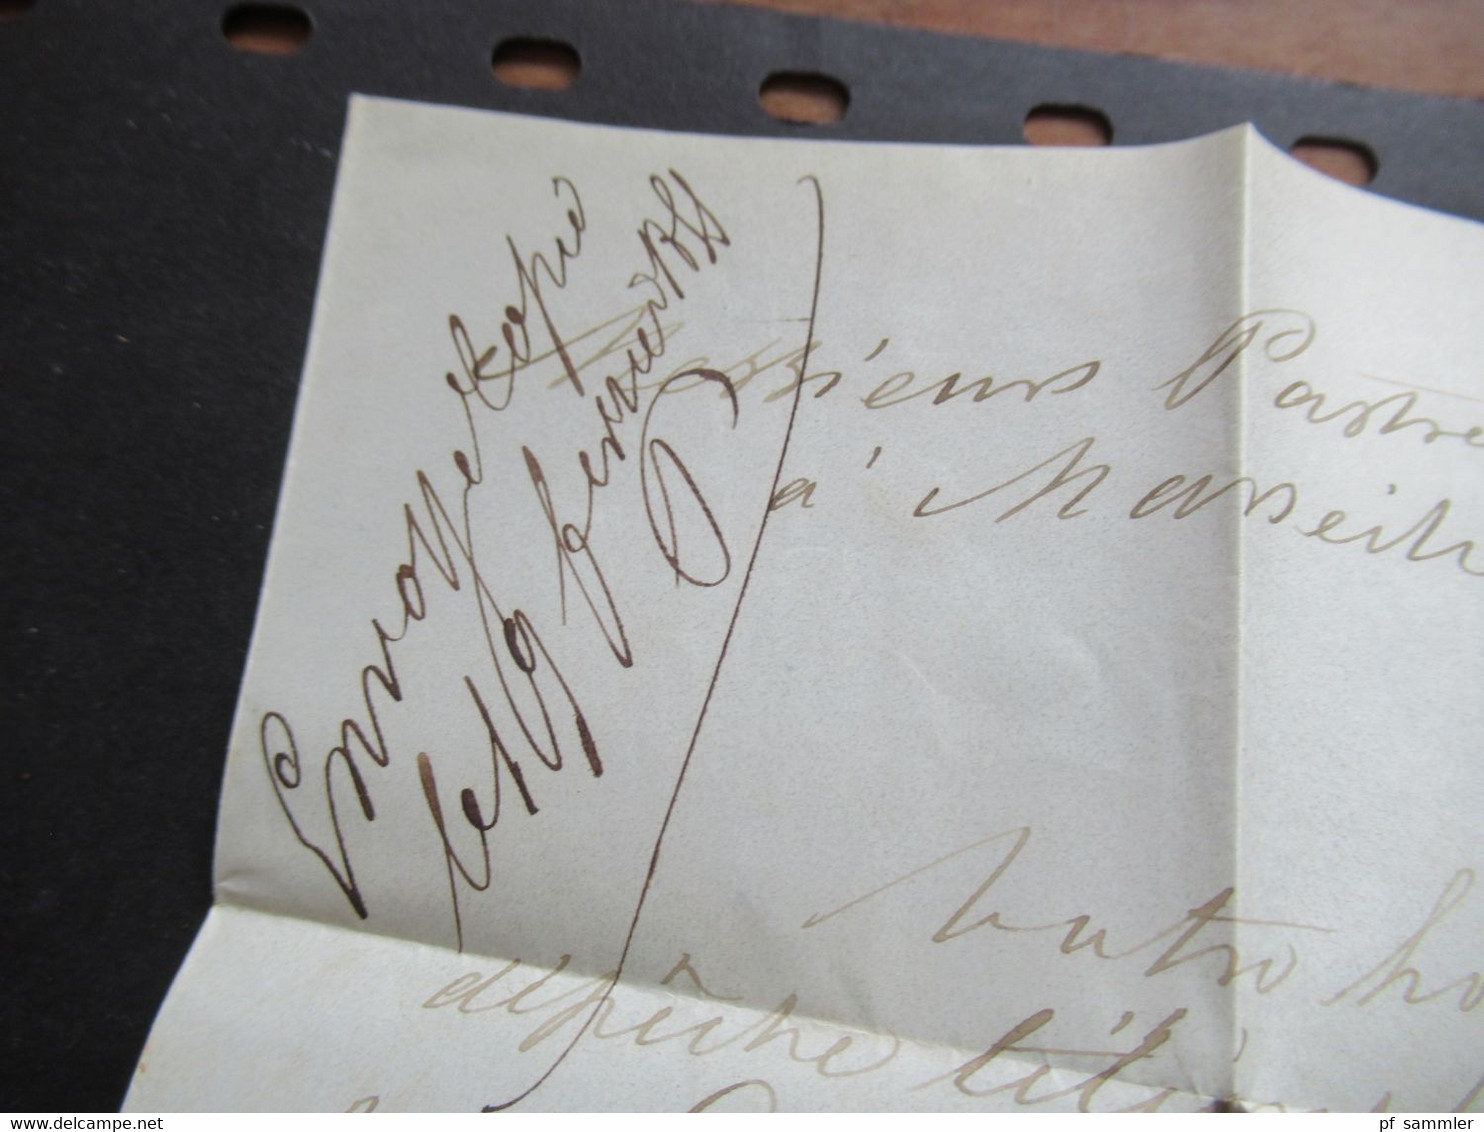 Envoyé copie
le 9 fevrier
Messieurs Pastre
à Marseil
Votre ho
dépêche télégr
delcampe.net
pf_sammler